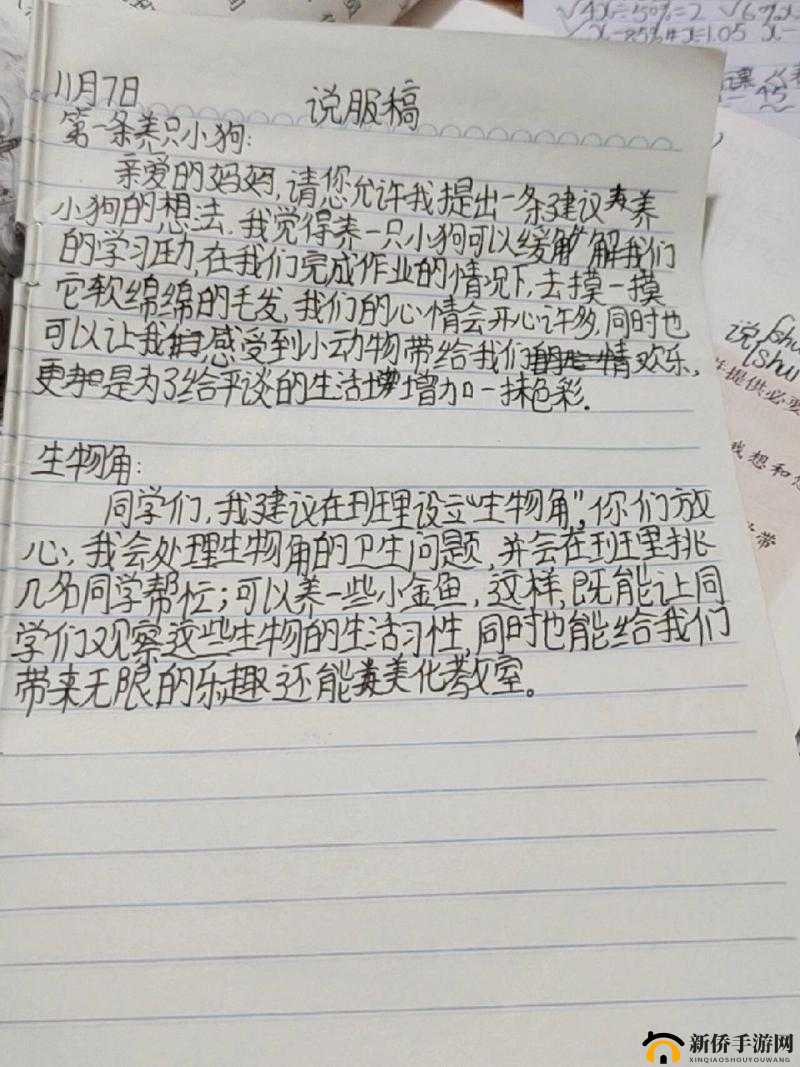 √4x÷50%=2 √6%x
√x-85%x=1.05 x-
11月7日 说服稿
第一条养只小狗：
亲爱的妈妈，请您允许我提出一条建议养
小狗的想去，我觉得养一只小狗可以缓解我们
的学习压力，在我们完成作业的情况下，去摸一摸
它软绵绵的毛发，我们的心情会开心许多，同时也
可以让我们感受到小动物带给我们的情欢乐，
更是为了给平谈的生活增加一抹色彩．
生物角：
同学们，我建议在班里设立“生物角”，你们放
心，我会处理生物角的卫生问题，并会在班里挑
几名同学帮忙；可以养一些小金鱼，这样，既能让同
学们观察这些生物的生活习性，同时也能给我们
带来无限的乐趣还能美化教室。
说
(shu
(shu
提供必要
我想和
新侨手游网
XINQIAOSHOUYOUWANG